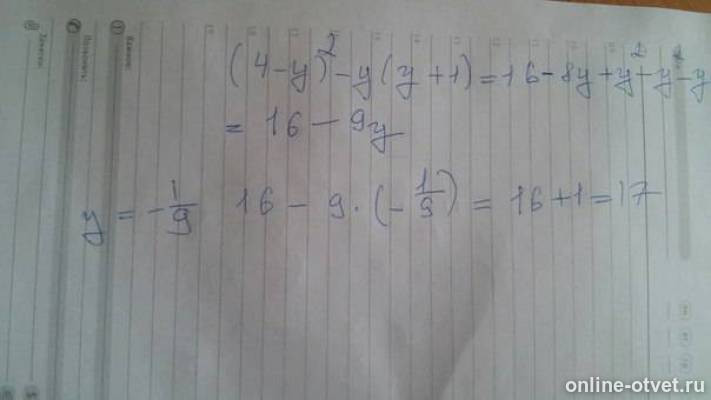 (4-y)²-y(y+1)=16-8y+y²-y²-y
= 16 - 9y
y = -1/9 16 - 9·(-1/9) = 16+1=17
online-otvet.ru